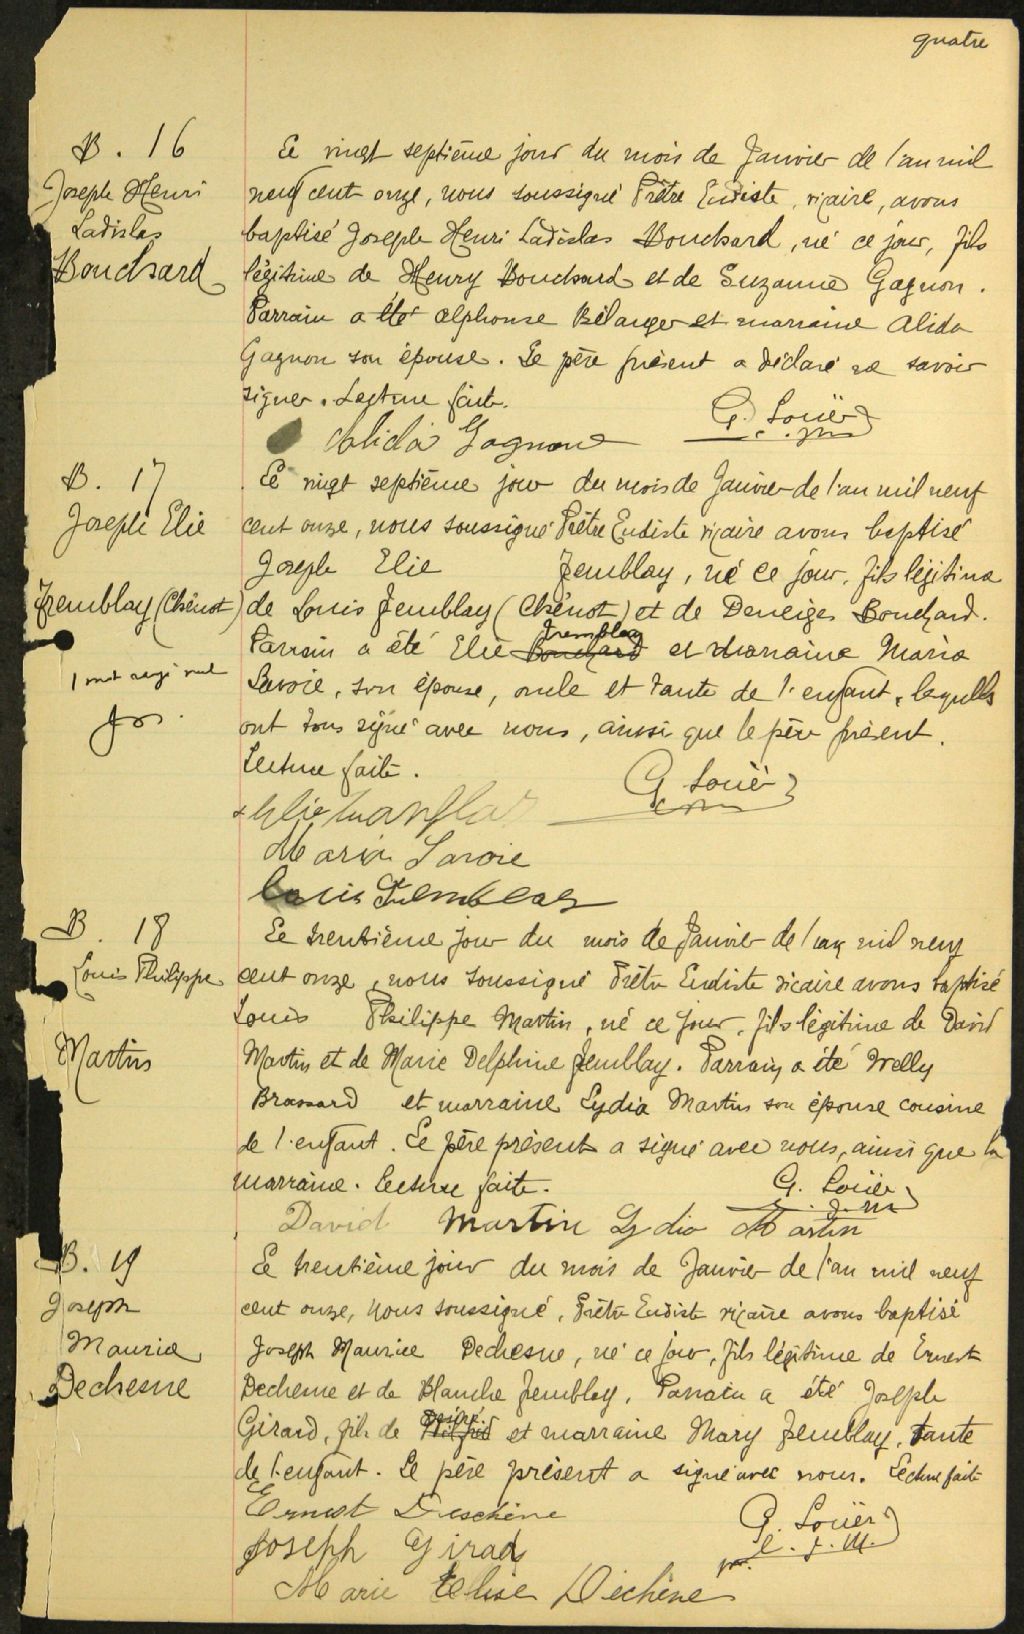 quatre
B. 16
Joseph Henri
Ladislas
Bouchard
Le vingt septième jour du mois de Janvier de l'an mil
neuf cent onze, nous soussigné Prêtre Eudiste, vicaire, avons
baptisé Joseph Henri Ladislas Bouchard, né ce jour, fils
légitime de Henry Bouchard et de Suzanne Gagnon.
Parrain a été Alphonse Bélanger et marraine Alida
Gagnon son épouse. Le père présent a déclaré ne savoir
signer. Lecture faite.
G. Louër
c.j.m
Alida Gagnon
B. 17
Joseph Elie
Tremblay (Chénot)
1 mot rayé nul
Le vingt septième jour du mois de Janvier de l'an mil neuf
cent onze, nous soussigné Prêtre Eudiste vicaire avons baptisé
Joseph Elie Tremblay, né ce jour, fils légitime
de Louis Tremblay (Chénot) et de Deneiges Bouchard.
Tremblay
Parrain a été Elie Bouchard et marraine Maria
Savoie, son épouse, oncle et tante de l'enfant, lesquels
ont tous signé avec nous, ainsi que le père présent.
Lecture faite.
G. Louër
c.j.m
Maria Savoie
Louis Tremblay
B. 18
Louis Philippe
Martin
Le trentième jour du mois de Janvier de l'an mil neuf
cent onze, nous soussigné Prêtre Eudiste vicaire avons baptisé
Louis Philippe Martin, né ce jour, fils légitime de David
Martin et de Marie Delphine Tremblay. Parrain a été Welly
Brassard et marraine Lydia Martin son épouse cousine
de l'enfant. Le père présent a signé avec nous, ainsi que la
marraine. Lecture faite.
G. Louër
c.j.m
David Martin Lydia Martin
B. 19
Joseph
Maurice
Dechesne
Le trentième jour du mois de Janvier de l'an mil neuf
cent onze, nous soussigné, Prêtre Eudiste vicaire avons baptisé
Joseph Maurice Dechesne, né ce jour, fils légitime de Ernest
Dechesne et de Blanche Tremblay. Parrain a été Joseph
Girard, fils de et marraine Mary Tremblay, tante
de l'enfant. Le père présent a signé avec nous. Lecture faite
Ernest Deschêne
G. Louër
c.j.m.
Joseph Girad
Marie Elise Dechêne